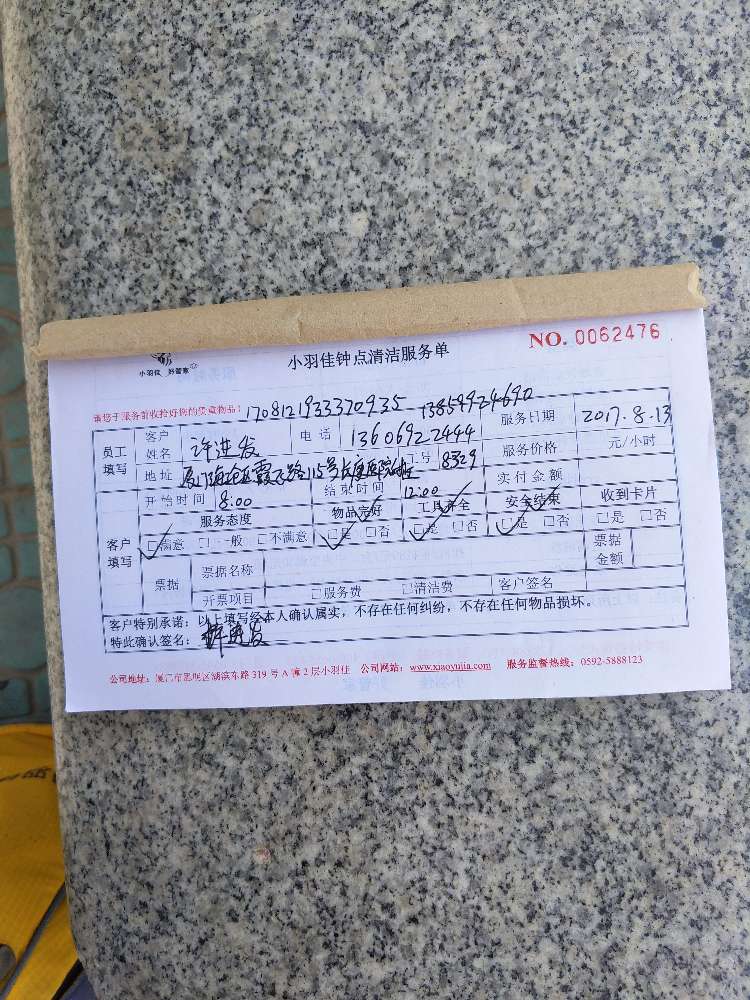 小羽佳 好管家
小羽佳钟点清洁服务单
NO. 0062476
请您于服务前收拾好您的贵重物品！
170812193337 0935 13859924690
员工填写 客户姓名 许进发 电话 13606922444 服务日期 2017.8.13
地址 厦门海沧区霞飞路15号长庚医院 工号 8329 服务价格 元/小时
开始时间 8:00 结束时间 12:00 实付金额
客户填写 服务态度 物品完好 工具齐全 安全结束 收到卡片
□满意 □一般 □不满意 □是 □否 □是 □否 □是 □否 □是 □否
票据 票据名称 票据金额
开票项目 □服务费 □清洁费 客户签名
客户特别承诺：以上填写经本人确认属实，不存在任何纠纷，不存在任何物品损坏。
特此确认签名： 许进发
公司地址：厦门市思明区湖滨东路 319 号 A 幢 2 层小羽佳 公司网站：www.xiaoyujia.com 服务监督热线：0592-5888123